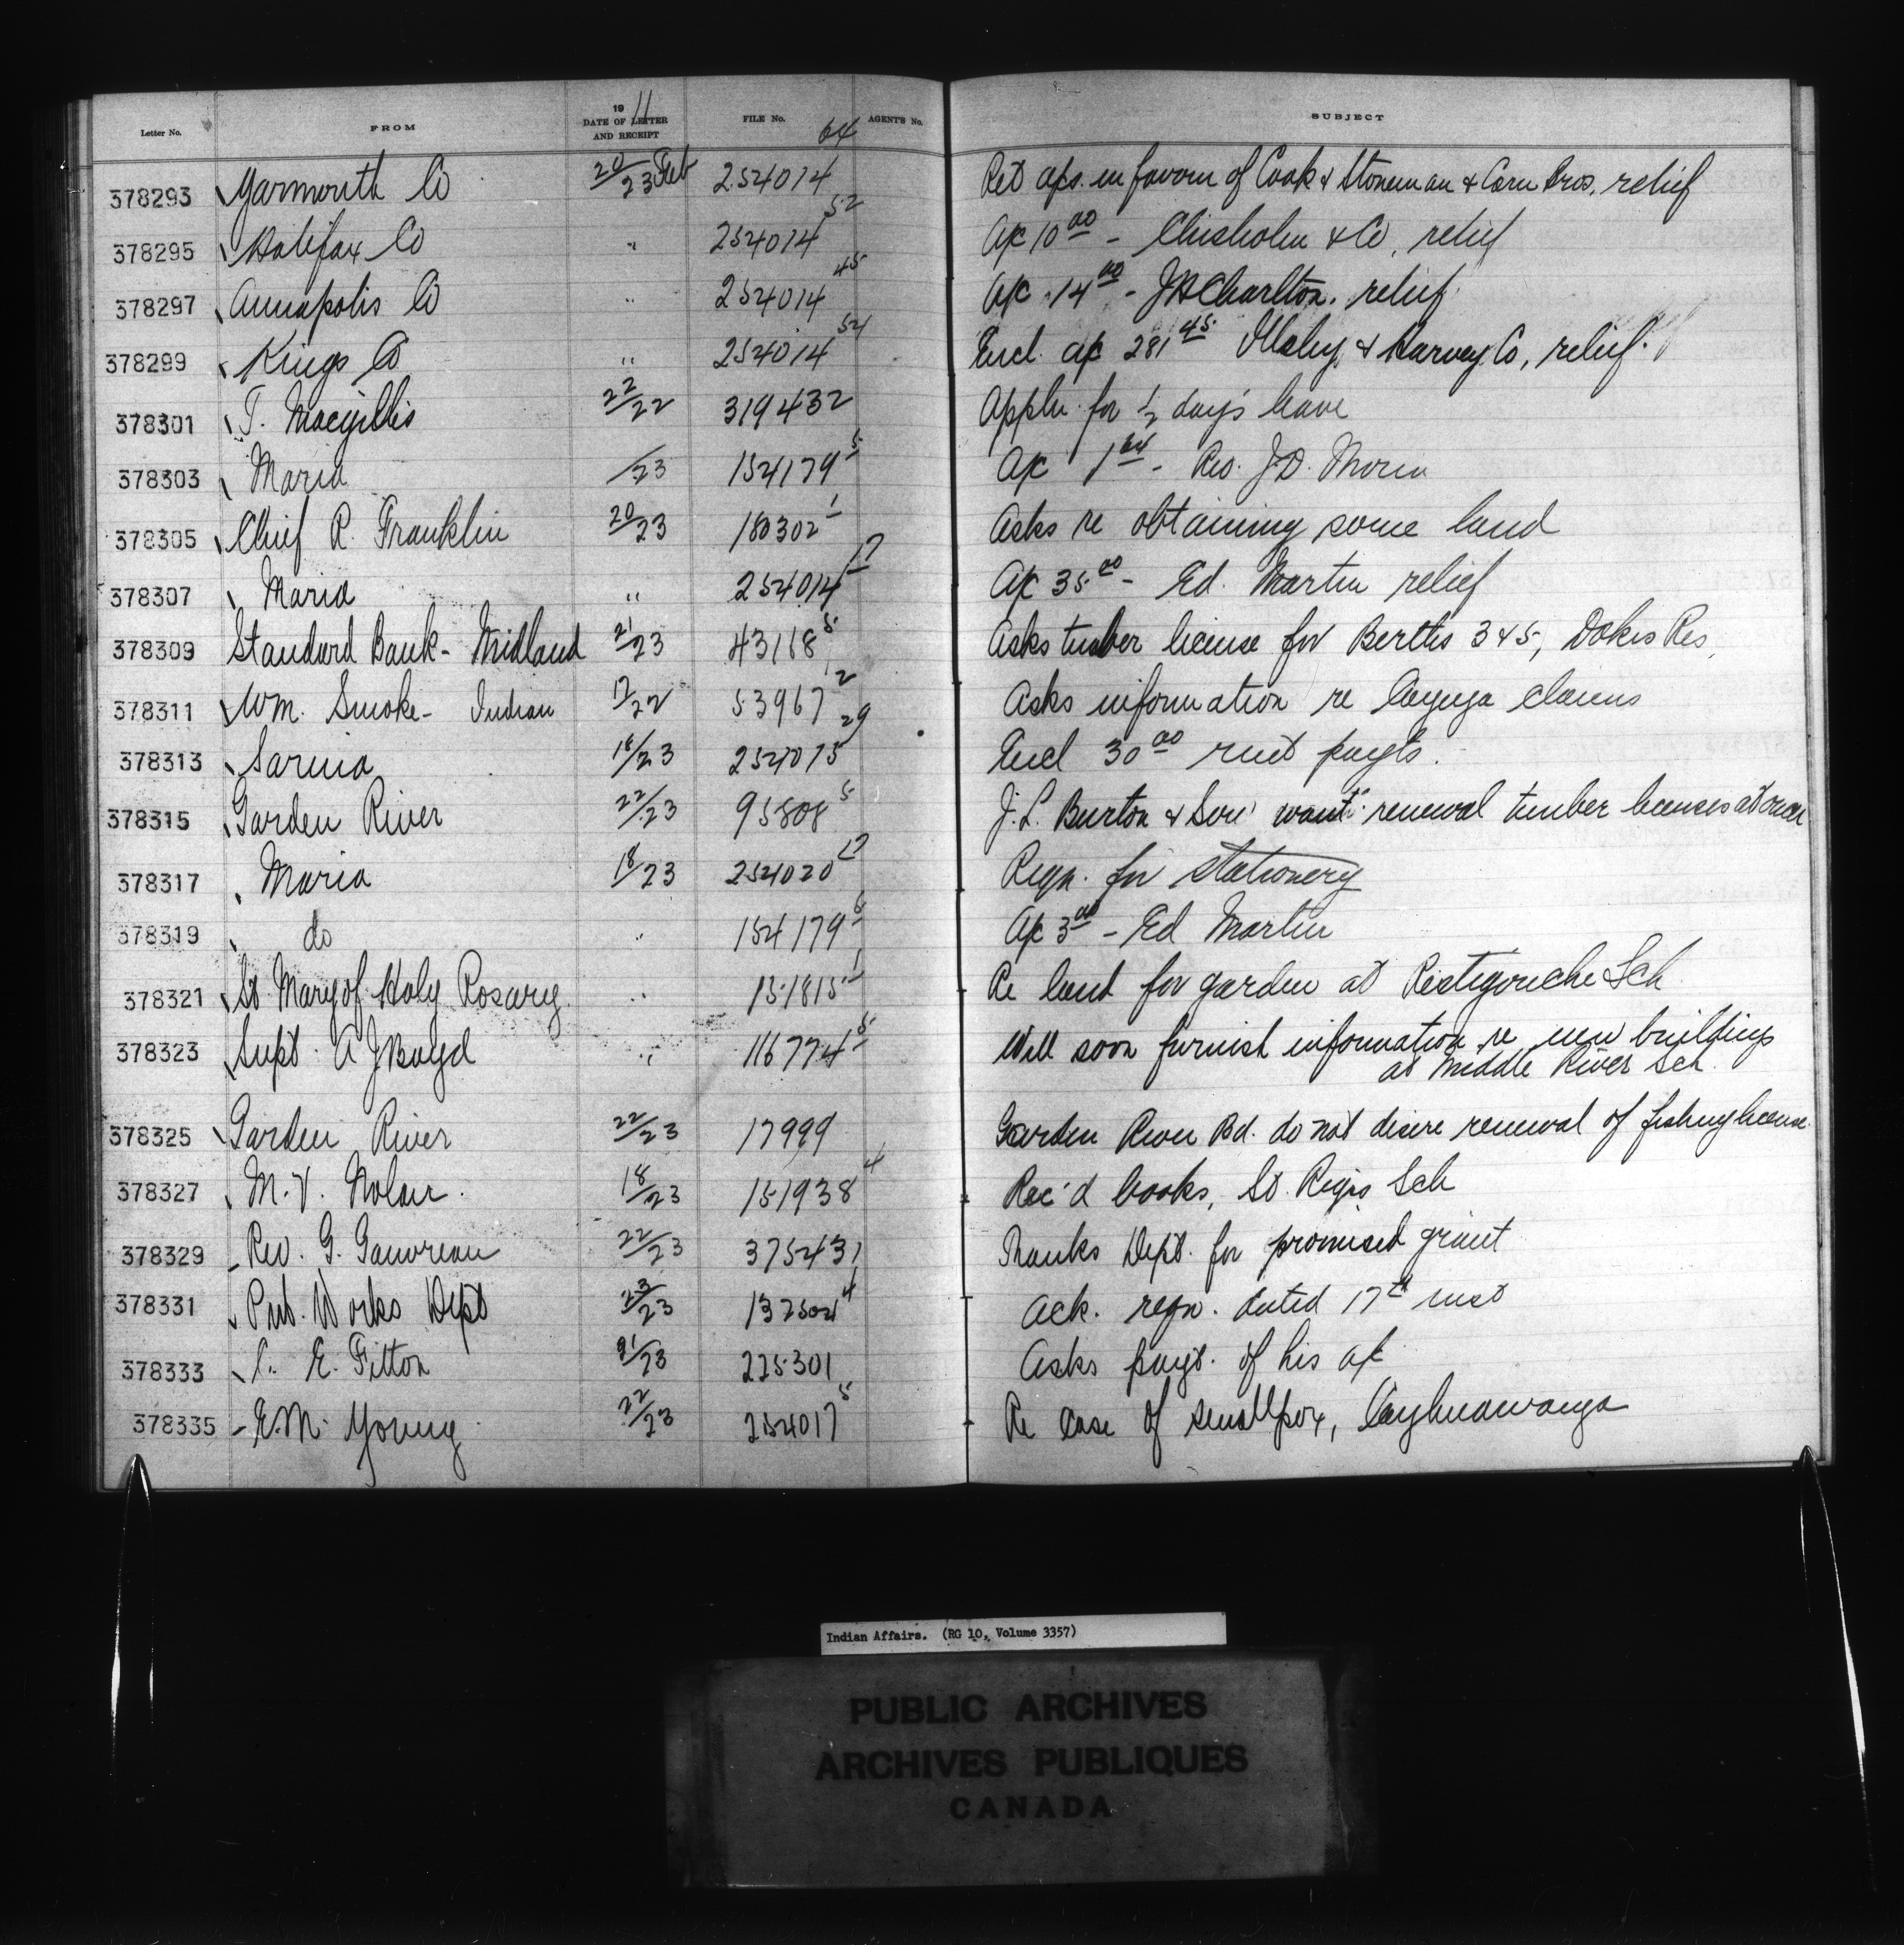 Letter No. FROM 1911 DATE OF LETTER AND RECEIPT FILE No. AGENT'S No. SUBJECT
378293 Yarmouth Co 20/23 Feb 254014 64 Ret aps. in favour of Cook & Stoneman & Corn Bros, relief
378295 Halifax Co " 254014 52 a/c 10 00 - Chisholm & Co, relief
378297 Annapolis Co " 254014 45 a/c 14 00 - J H Charlton, relief.
378299 Kings Co " 254014 54 Encl. a/c 281 45 Illsley & Harvey Co, relief.
378301 T. Macgillis 22/22 319432 Appln. for 1/2 day's leave
378303 Maria /23 154179 5 a/c 1 64 - Rev. J.D. Morin
378305 Chief R. Franklin 20/23 180302 1 Asks re obtaining some land
378307 Maria " 254014 17 a/c 35 00 - Ed. Martin relief
378309 Standard Bank - Midland 21/23 43168 5 Asks timber license for Berths 3 & 5, Dokis Res.
378311 Wm. Smoke - Indian 17/22 53967 2 Asks information re Cayuga claims
378313 Sarnia 18/23 254015 29 Encl 30 00 rent payts.
378315 Garden River 22/23 95808 5 J.L. Burton & Son want renewal timber licenses at once
378317 Maria 18/23 254020 17 Reqn. for stationery
378319 do " 154179 5 a/c 3 00 - Ed Martin
378321 St. Mary of Holy Rosary " 151815 1 Re land for garden at Restigouche Sch
378323 Supt. A J Boyd " 116774 5 Will soon furnish information re new buildings
at Middle River Sch.
378325 Garden River 22/23 17999 Garden River Bd. do not desire renewal of fishing license
378327 M. V. Nolan. 18/23 151938 4 Rec'd books, St. Regis Sch
378329 Rev. G. Gauvreau 22/23 375431 Thanks Dept. for promised grant
378331 Pub. Works Dept 23/23 137504 4 Ack. reqn. dated 17th inst
378333 C. E. Fitton 21/23 225301 Asks payt. of his a/c
378335 E.M. Young 22/23 254017 5 Re case of smallpox, Caughnawauga
Indian Affairs. (RG 10, Volume 3357)
PUBLIC ARCHIVES
ARCHIVES PUBLIQUES
CANADA